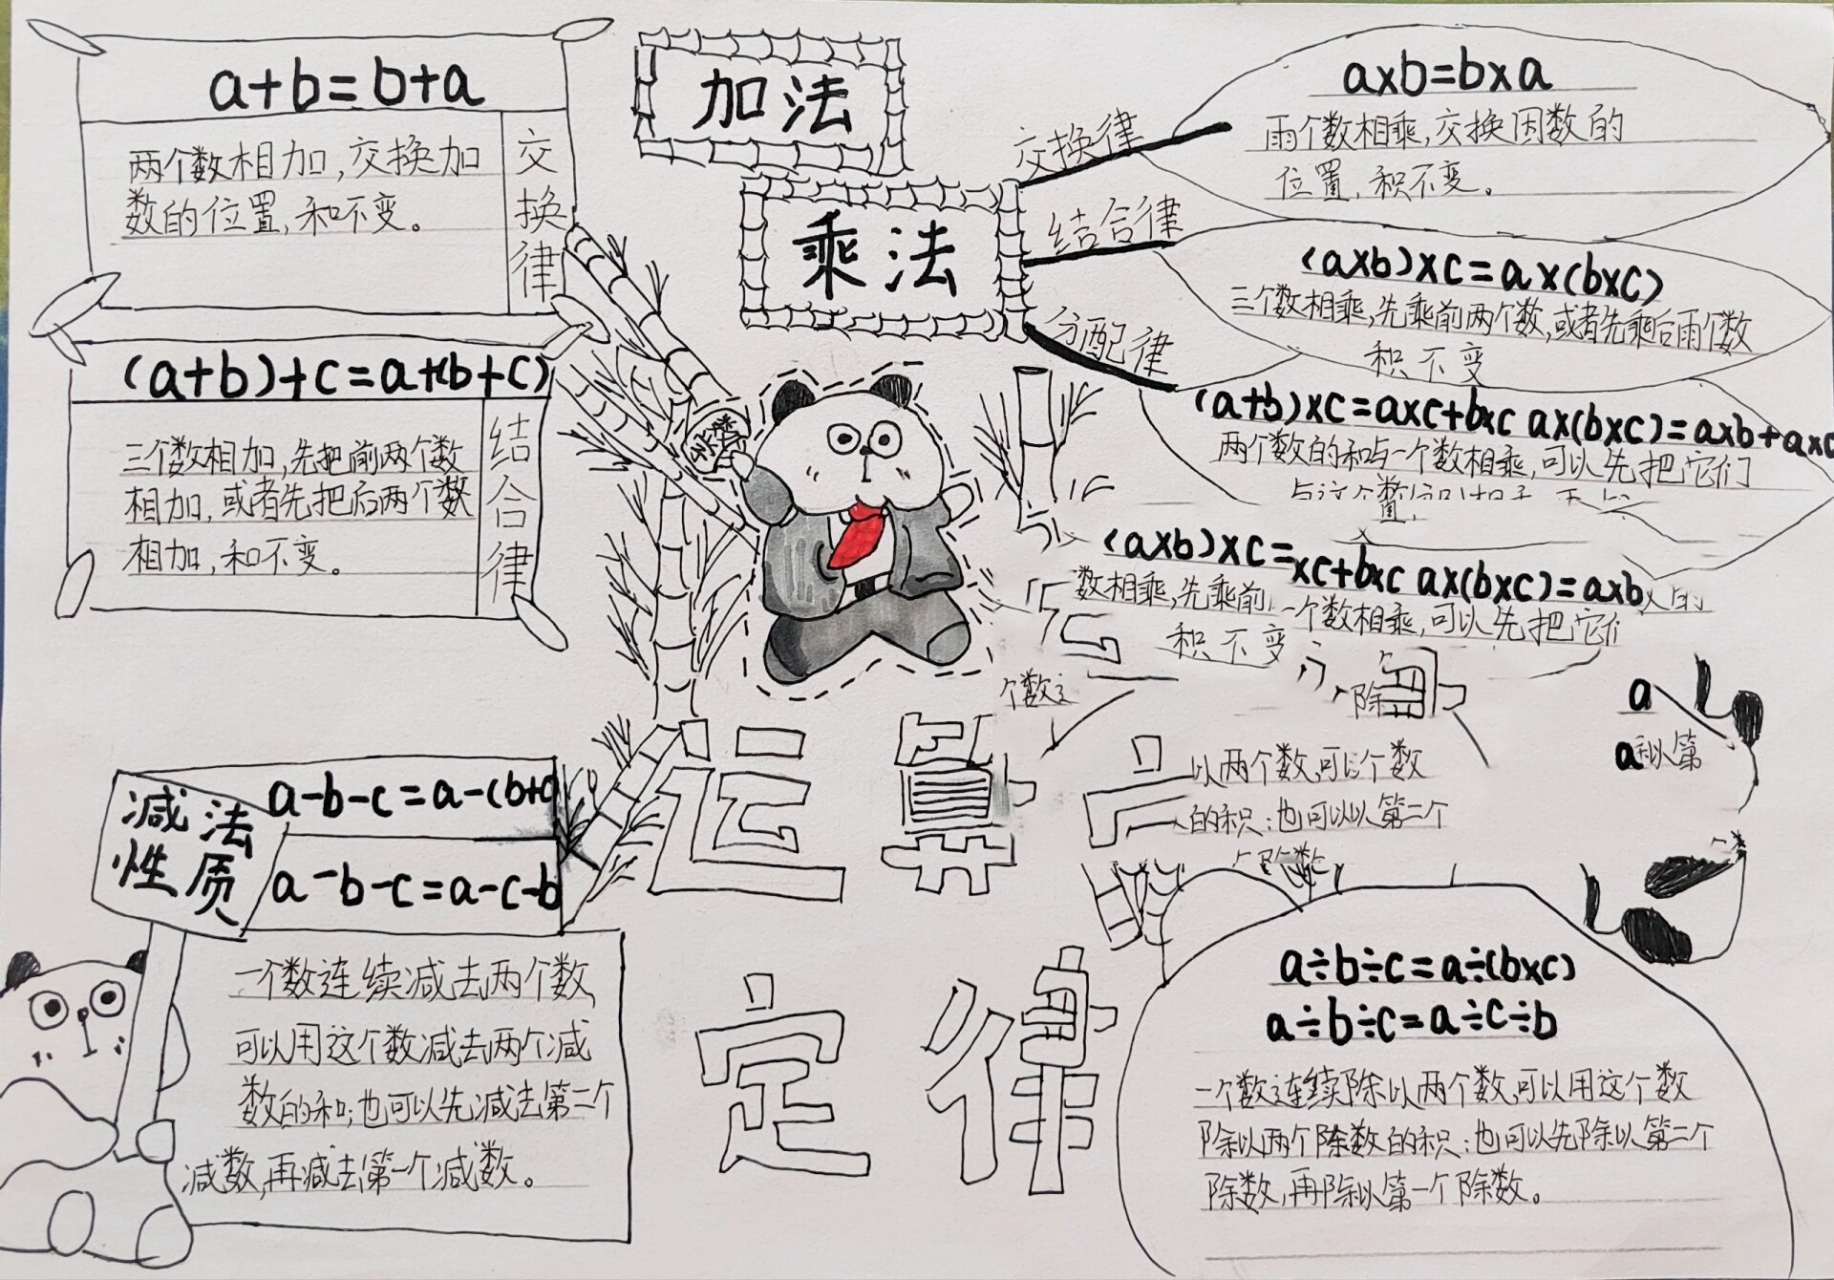 a+b=b+a
两个数相加,交换加
数的位置,和不变。
交换律
(a+b)+c=a+(b+c)
三个数相加,先把前两个数
相加,或者先把后两个数
相加,和不变。
结合律
加法
乘法
交换律
a×b=b×a
两个数相乘,交换因数的
位置,积不变。
结合律
(a×b)×c=a×(b×c)
三个数相乘,先乘前两个数,或者先乘后两个数
积不变
分配律
(a+b)×c=a×c+b×c a×(b×c)=a×b+a×c
两个数的和与一个数相乘,可以先把它们
(a×b)×c=
×c+b×c a×(b×c)=a×b
数相乘,先乘前
一个数相乘,可以先把它们
积不变
个数
除
a
a 以第
以两个数,可以个数
的积;也可以以第二个
运算
定律
减法
性质
a-b-c=a-(b+c
a-b-c=a-c-b
一个数连续减去两个数,
可以用这个数减去两个减
数的和;也可以先减去第二个
减数,再减去第一个减数。
a÷b÷c=a÷(b×c)
a÷b÷c=a÷c÷b
一个数连续除以两个数,可以用这个数
除以两个除数的积;也可以先除以第二个
除数,再除以第一个除数。